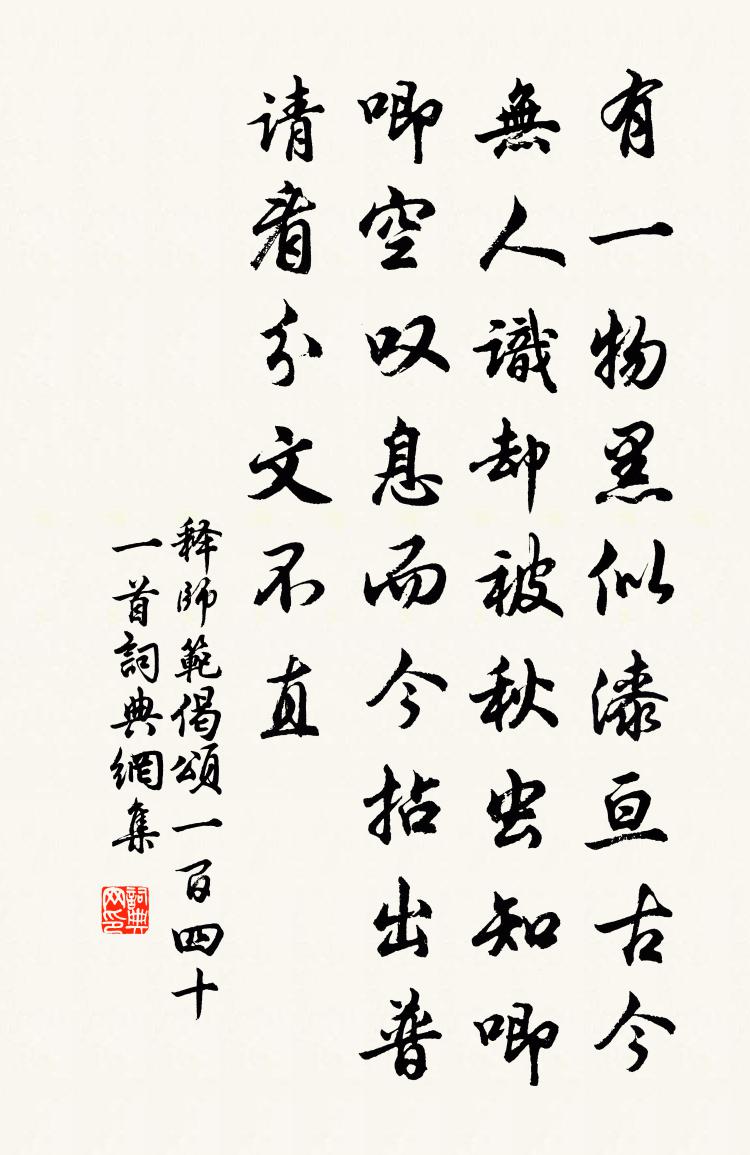 有一物黑似漆亘古今
無人識却被秋虫知唧
唧空叹息而今拈出普
请看分文不直
释師範偈頌一百四十
一首詞典網集
詞典网印